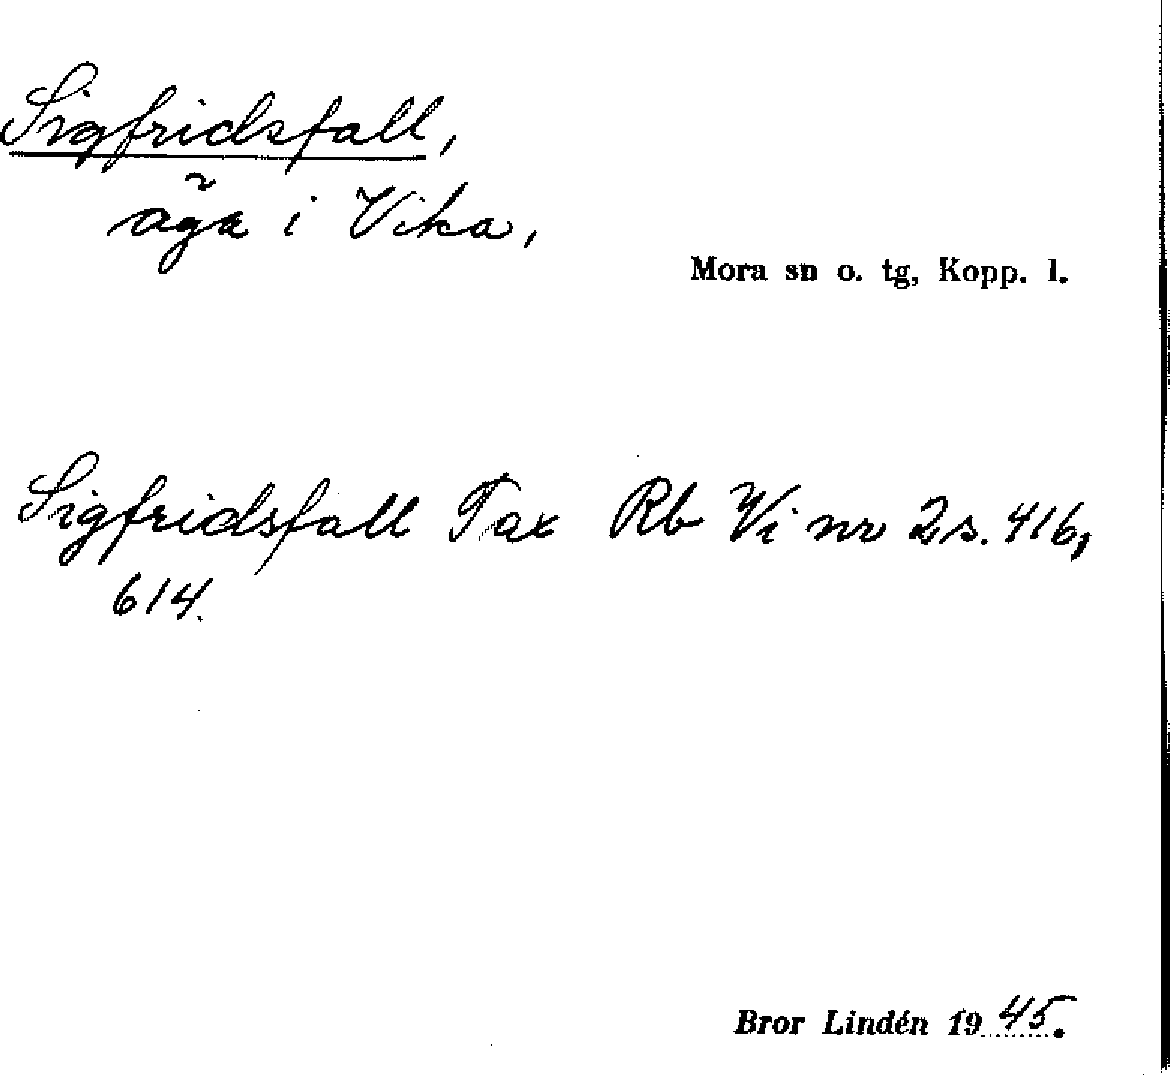 Sigfridsfall,
äga i Vika,
Mora sn o. tg, Kopp. l.
Sigfridsfall Tax Rb Vi nr 2 s. 416,
614.
Bror Lindén 1945.